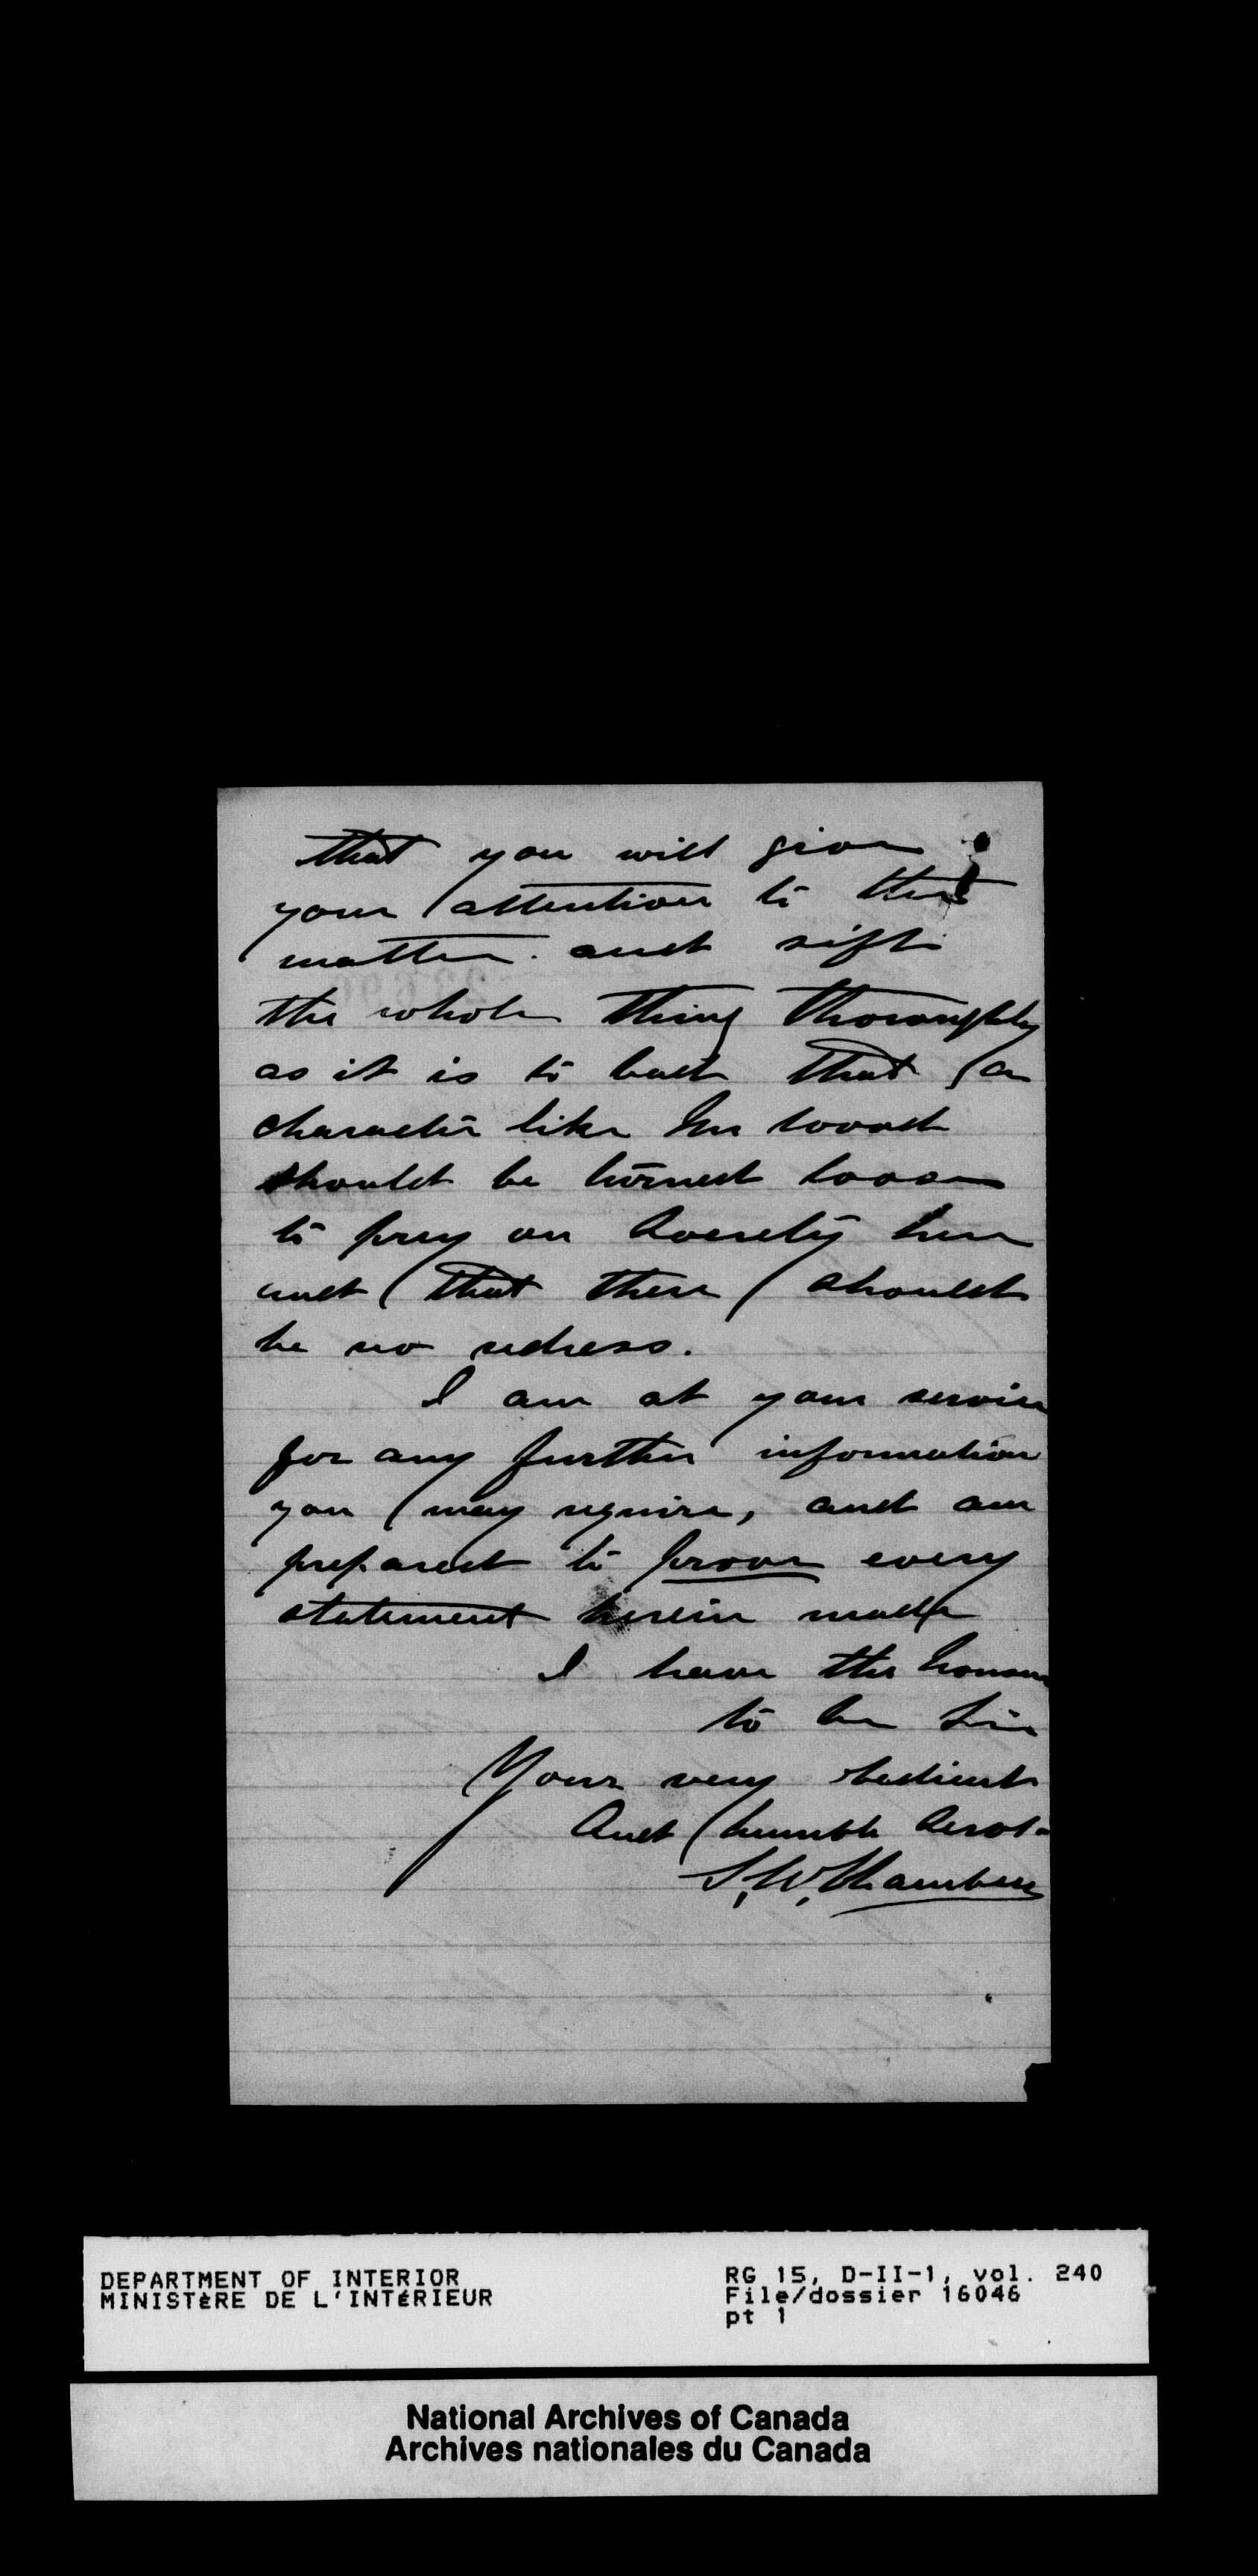 that you will give
your attention to this
matter. and sift
the whole thing thoroughly
as it is to bad that a
character like
should be turned loose
to prey on society here
and that there should
be no redress.
I am at your service
for any further information
you may require, and am
prepared to prove every
statement herein made
I have the honour
to be Sir
Your very obedient
And humble Servt.
S. W. Chambers
DEPARTMENT OF INTERIOR
MINISTÈRE DE L'INTÉRIEUR
RG 15, D-II-1, vol. 240
File/dossier 16046
pt 1
National Archives of Canada
Archives nationales du Canada